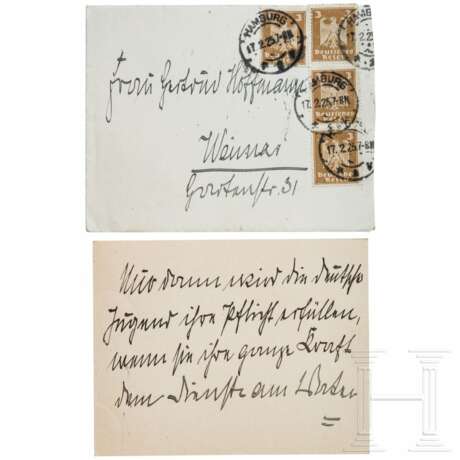 HAMBURG
17.2.25.7-8N
3
3
Deutsches
Reich
HAMBURG
17.2.25.7-8N
17.2.25.7-8N
3
Deutsches
Reich
Frau Gertrud Hoffmann
Weimar
Gartenstr. 31
Nur dann wird die deutsche
Jugend ihre Pflicht erfüllen,
wenn sie ihre ganze Kraft
dem Dienste am Vater
=
H